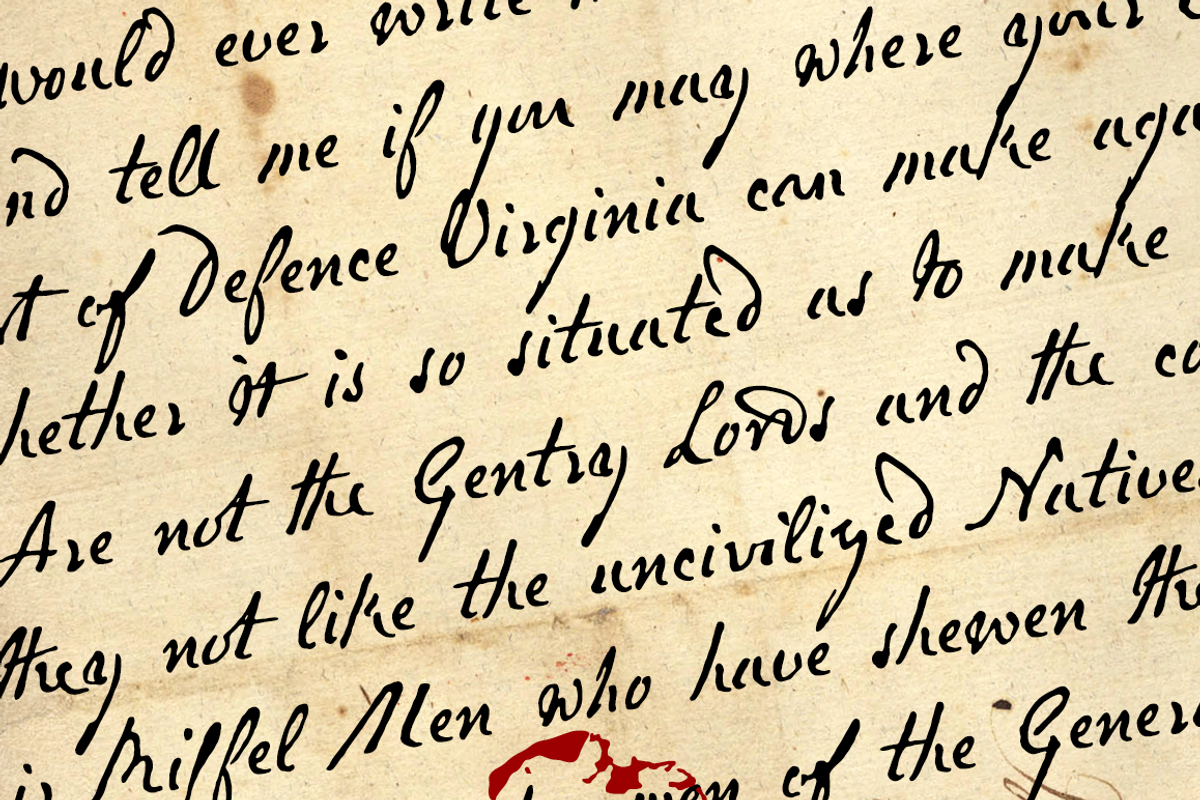 would ever write
nd tell me if you may where your
rt of Defence Virginia can make aga
hether it is so situated as to make
Are not the Gentry Lords and the co
they not like the uncivilized Native
ir Riffel Men who have shewen the
men of the Gener